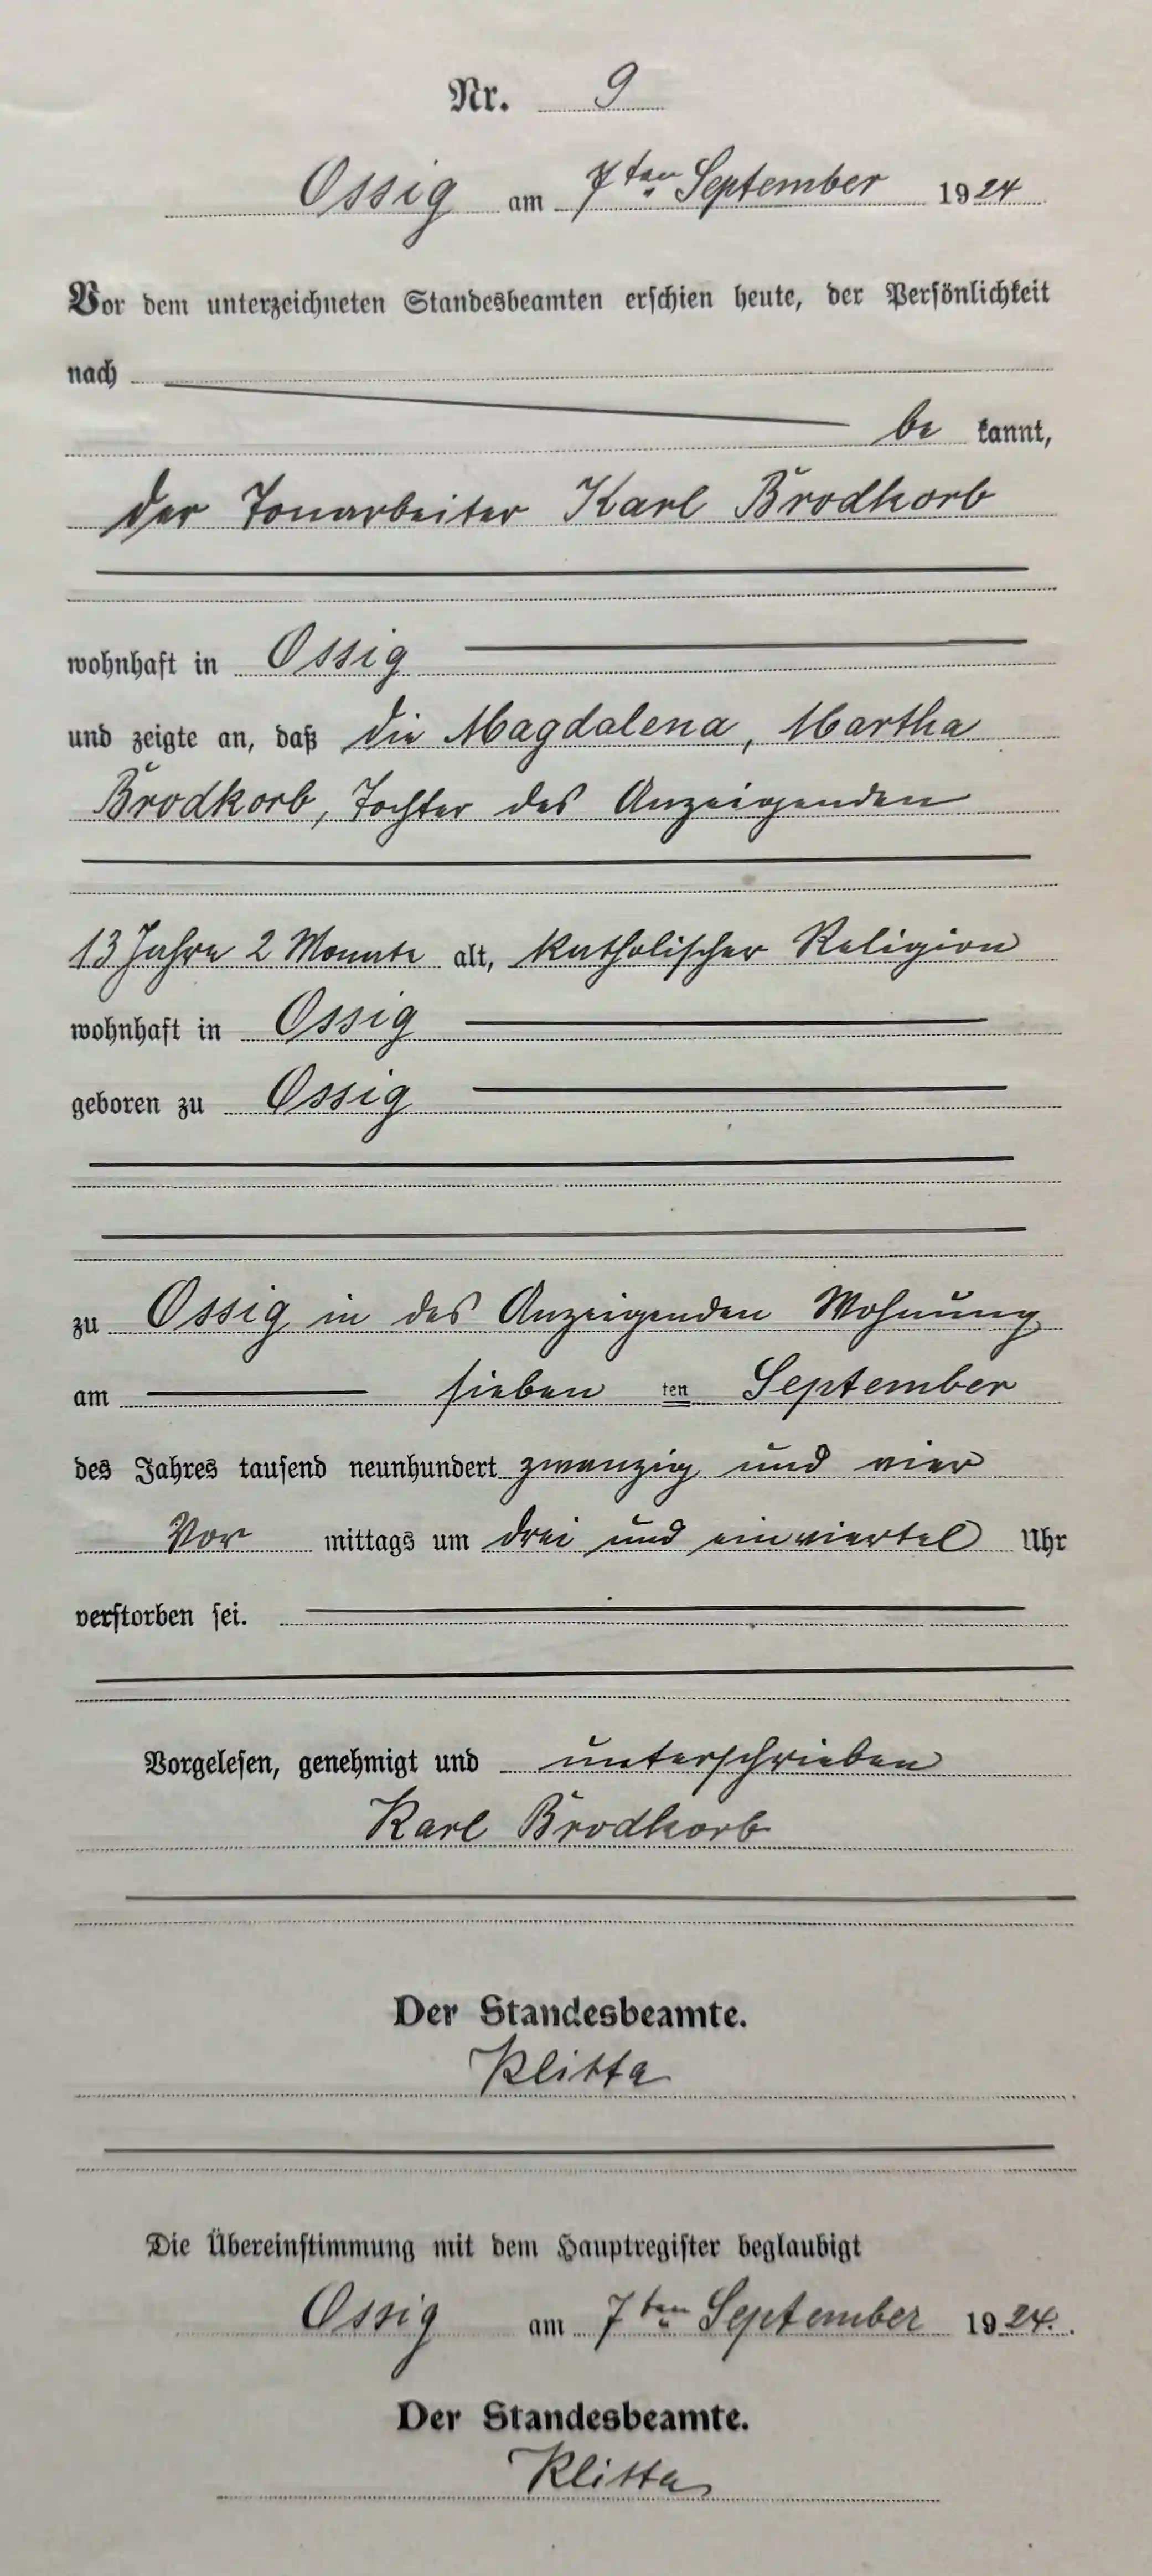 Nr. 9
Ossig am 7ten September 1924
Vor dem unterzeichneten Standesbeamten erschien heute, der Persönlichkeit
nach
be kannt,
der Tonarbeiter Karl Brodkorb
wohnhaft in Ossig
und zeigte an, daß die Magdalena, Martha
Brodkorb, Tochter des Anzeigenden
13 Jahre 2 Monate alt, katholischer Religion
wohnhaft in Ossig
geboren zu Ossig
zu Ossig in des Anzeigenden Wohnung
am sieben ten September
des Jahres tausend neunhundert zwanzig und vier
Vor mittags um drei und einviertel Uhr
verstorben sei.
Vorgelesen, genehmigt und unterschrieben
Karl Brodkorb
Der Standesbeamte.
Klitta
Die Übereinstimmung mit dem Hauptregister beglaubigt
Ossig am 7ten September 1924.
Der Standesbeamte.
Klitta